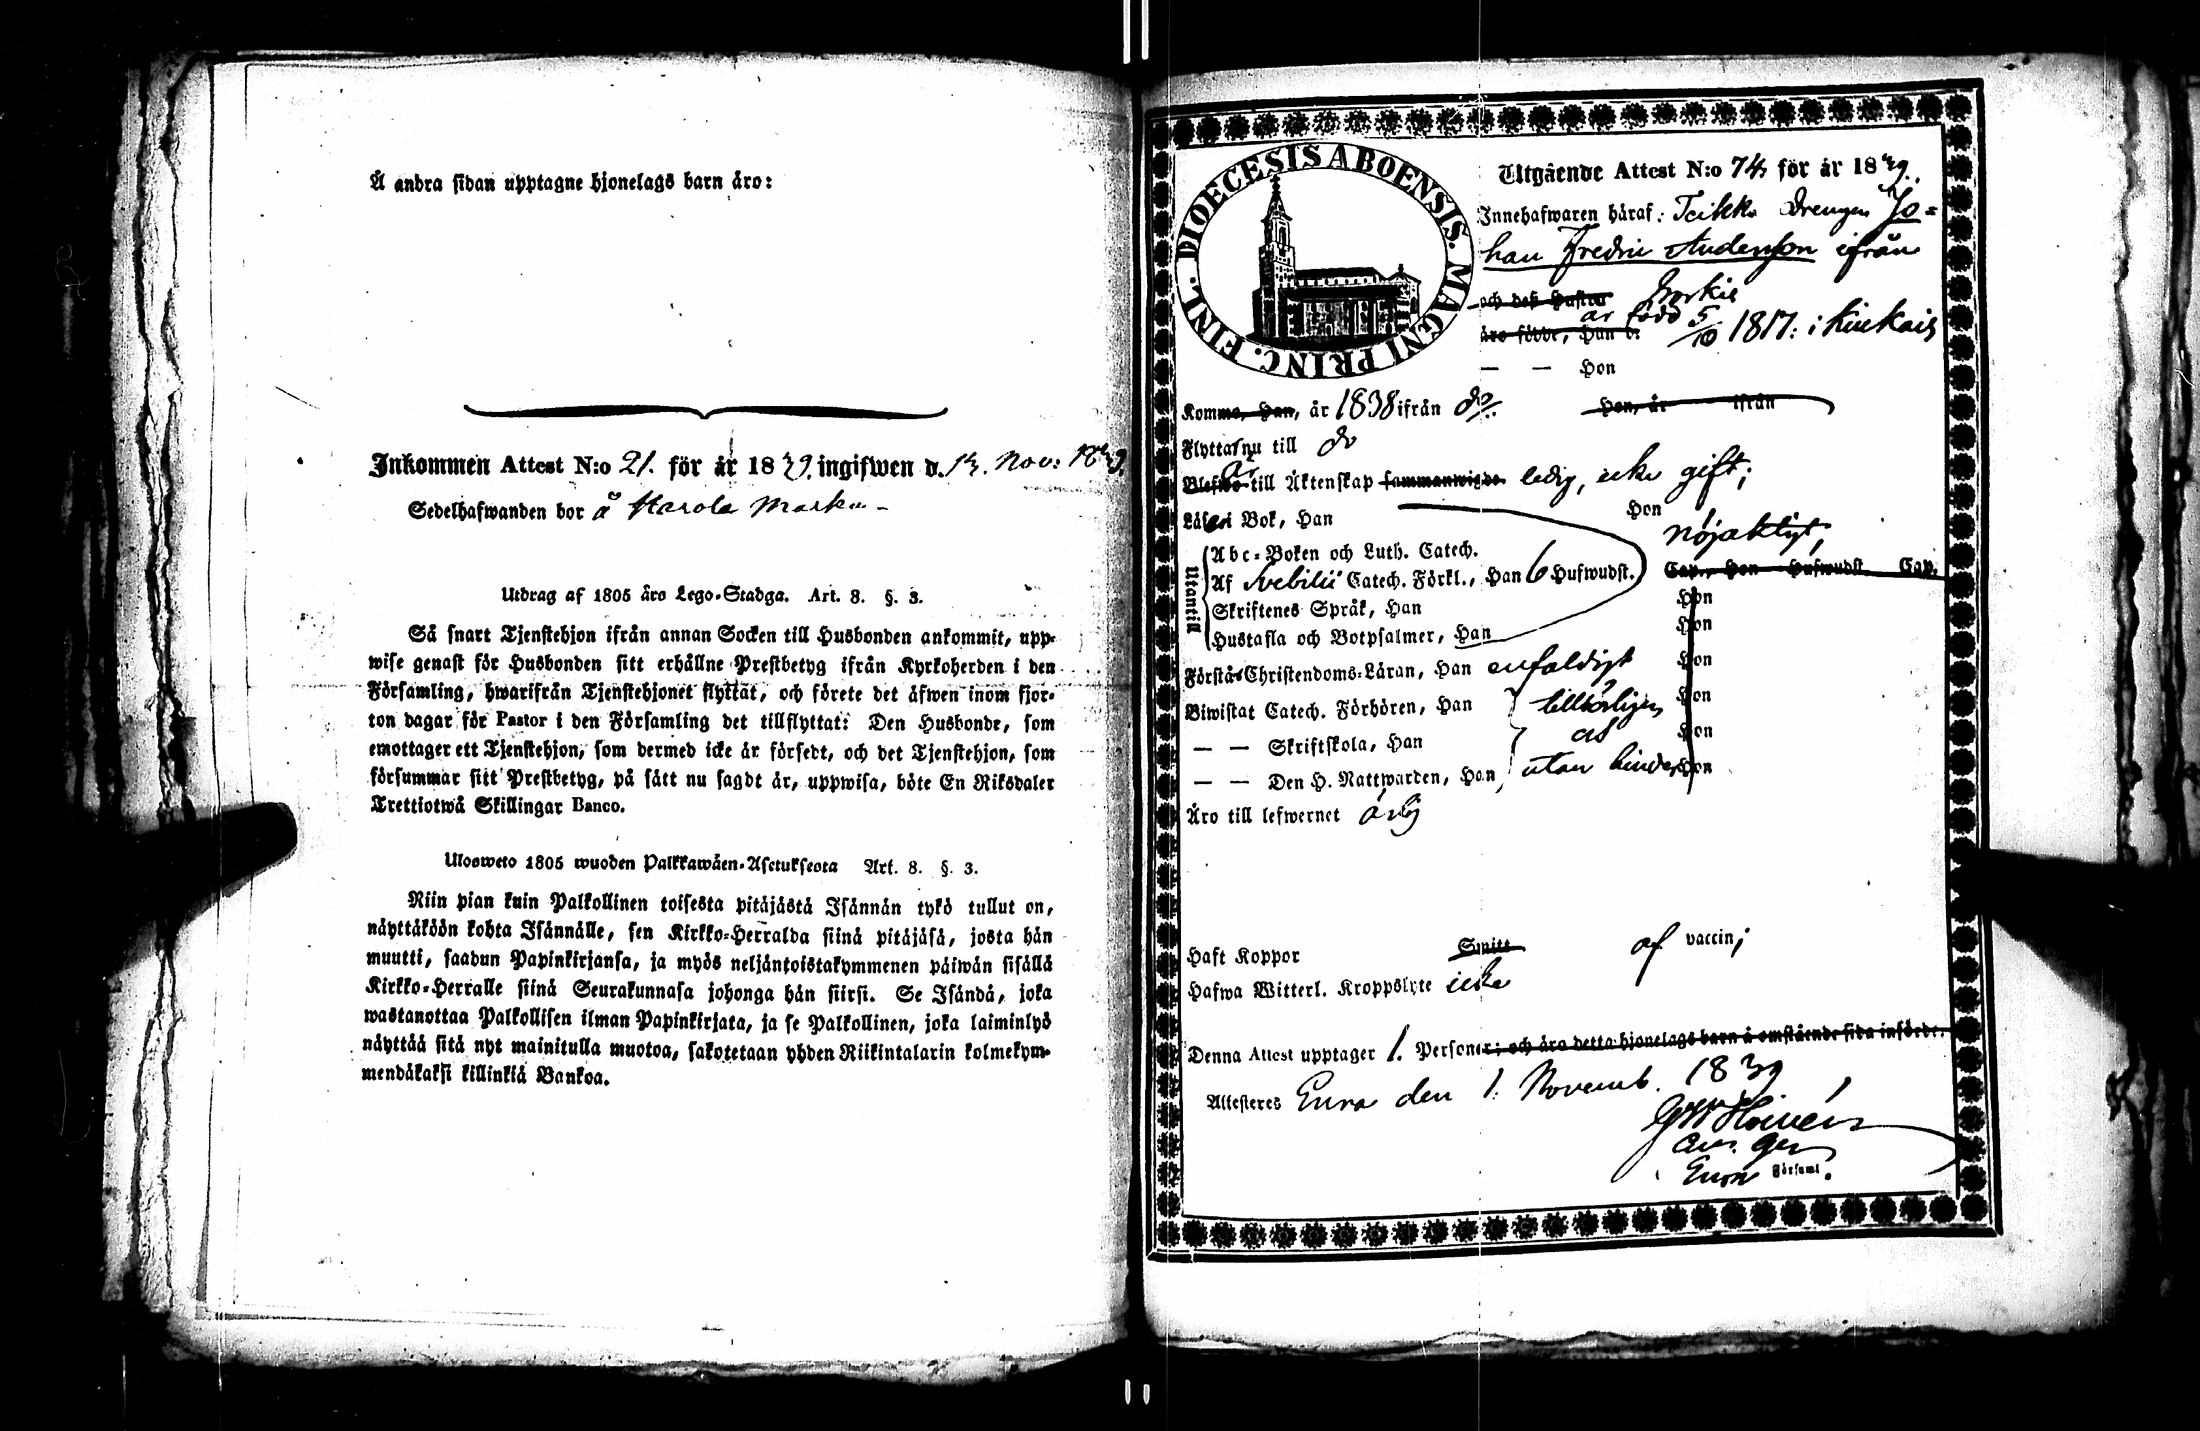 Å andra sidan upptagne hjonelags barn äro:
Inkommen Attest N:o 21. för år 1839. ingifwen d. 13. Nov: 1839.
Sedelhafwanden bor å Harola
Utdrag af 1805 års Lego-Stadga. Art. 8. §. 3.
Så snart Tjenstehjon ifrån annan Socken till Husbonden ankommit, upp-
wise genast för Husbonden sitt erhållne Prestbetyg ifrån Kyrkoherden i den
Församling, hwarifrån Tjenstehjonet flyttat, och förete det äfwen inom fjor-
ton dagar för Pastor i den Församling det tillflyttat: Den Husbonde, som
emottager ett Tjenstehjon, som dermed icke är försedt, och det Tjenstehjon, som
försummar sitt Prestbetyg, på sätt nu sagdt är, uppwisa, böte En Riksdaler
Trettiotwå Skillingar Banco.
Ulosweto 1805 wuoden Palkkawäen-Asetuksesta Art. 8. §. 3.
Niin pian kuin Palkollinen toisesta pitäjästä Isännän tykö tullut on,
näyttäköön kohta Isännälle, sen Kirkko-Herralda siinä pitäjäsä, josta hän
muutti, saadun Papinkirjansa, ja myös neljäntoistakymmenen päiwän sisällä
Kirkko-Herralle siinä Seurakunnasa johonga hän siirsi. Se Isändä, joka
wastanottaa Palkollisen ilman Papinkirjata, ja se Palkollinen, joka laiminlyö
näyttää sitä nyt mainitulla muotoa, sakotetaan yhden Riikintalarin kolmekym-
mendäkaksi killinkiä Bankoa.
DIOECESIS ABOENSIS. MAGNI PRINC. FINL.
Utgående Attest N:o 74 för år 1839.
Innehafwaren häraf: Drengen Jo-
han Fredric Anderson ifrån
och deß Hustru
är född
äro födde, Han d. 5/10 1817: i Kiukais
— — Hon
Komme, Han, år 1838 ifrån do. Hon, år ifrån
Flytta nu till do
är
Blefwo till Äktenskap sammanwigde ledig, icke gift;
Läsa i Bok, Han Hon
nöjaktigt,
Utantill
Abc-Boken och Luth. Catech.
Af Svebilii Catech. Förkl., Han 6 Hufwudst. Cap., Hon Hufwudst. Cap.
Skriftenes Språk, Han Hon
Hustafla och Botpsalmer, Han Hon
Förstå Christendoms-Läran, Han enfaldigt Hon
Biwistat Catech. Förhören, Han Hon
— — Skriftskola, Han Hon
— — Den H. Nattwarden, Han utan hinder Hon
Äro till lefwernet ärlig
Haft Koppor Smitt af vaccin;
Hafwa Witterl. Kroppslyte icke
Denna Attest upptager 1. Personer; och äro detta hjonelags barn å omstående sida införde.
Attesteres Eura den 1. Novemb. 1839
Eura Församl.